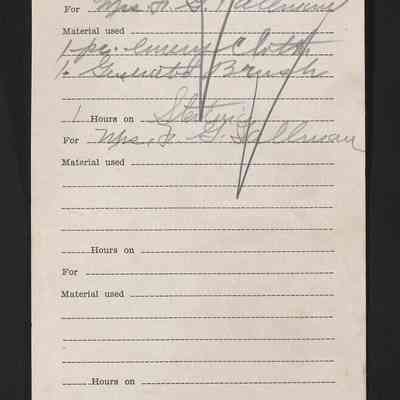 For Mrs. F. G. Tallman
Material used
1 pc. Emery Cloth
1. Generator Brush
1 Hours on Starting
For Mrs. F. G. Tallman
Material used
Hours on
For
Material used
Hours on